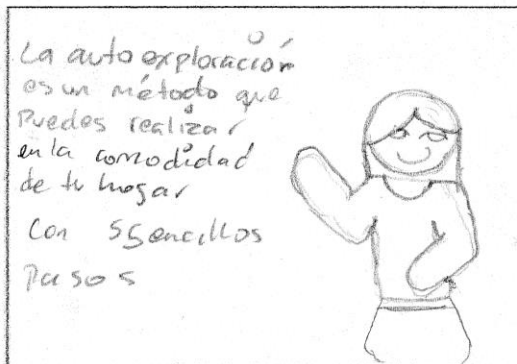 La autoexploración
es un método que
Puedes realizar
en la comodidad
de tu hogar
Con 5 Sencillos
Pasos